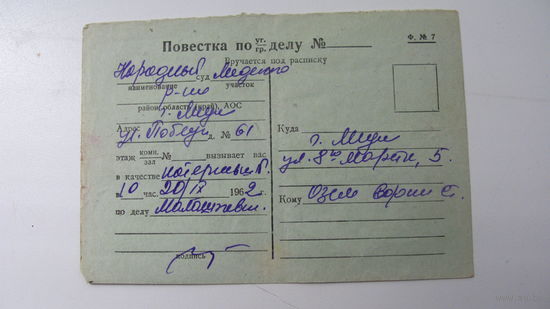 Повестка по уг. гр. делу №
Ф. № 7
Вручается под расписку
Народный суд Лидского
наименование участок
р-на
район, область (край), АОС
г. Лиди
Адрес ул. Победы д. № 61
этаж комн. зал № вызывает вас
в качестве
в 10 час. 20/IX 1962 г.
по делу
подпись
Куда г. Лиди
ул. 8го Марта, 5.
Кому